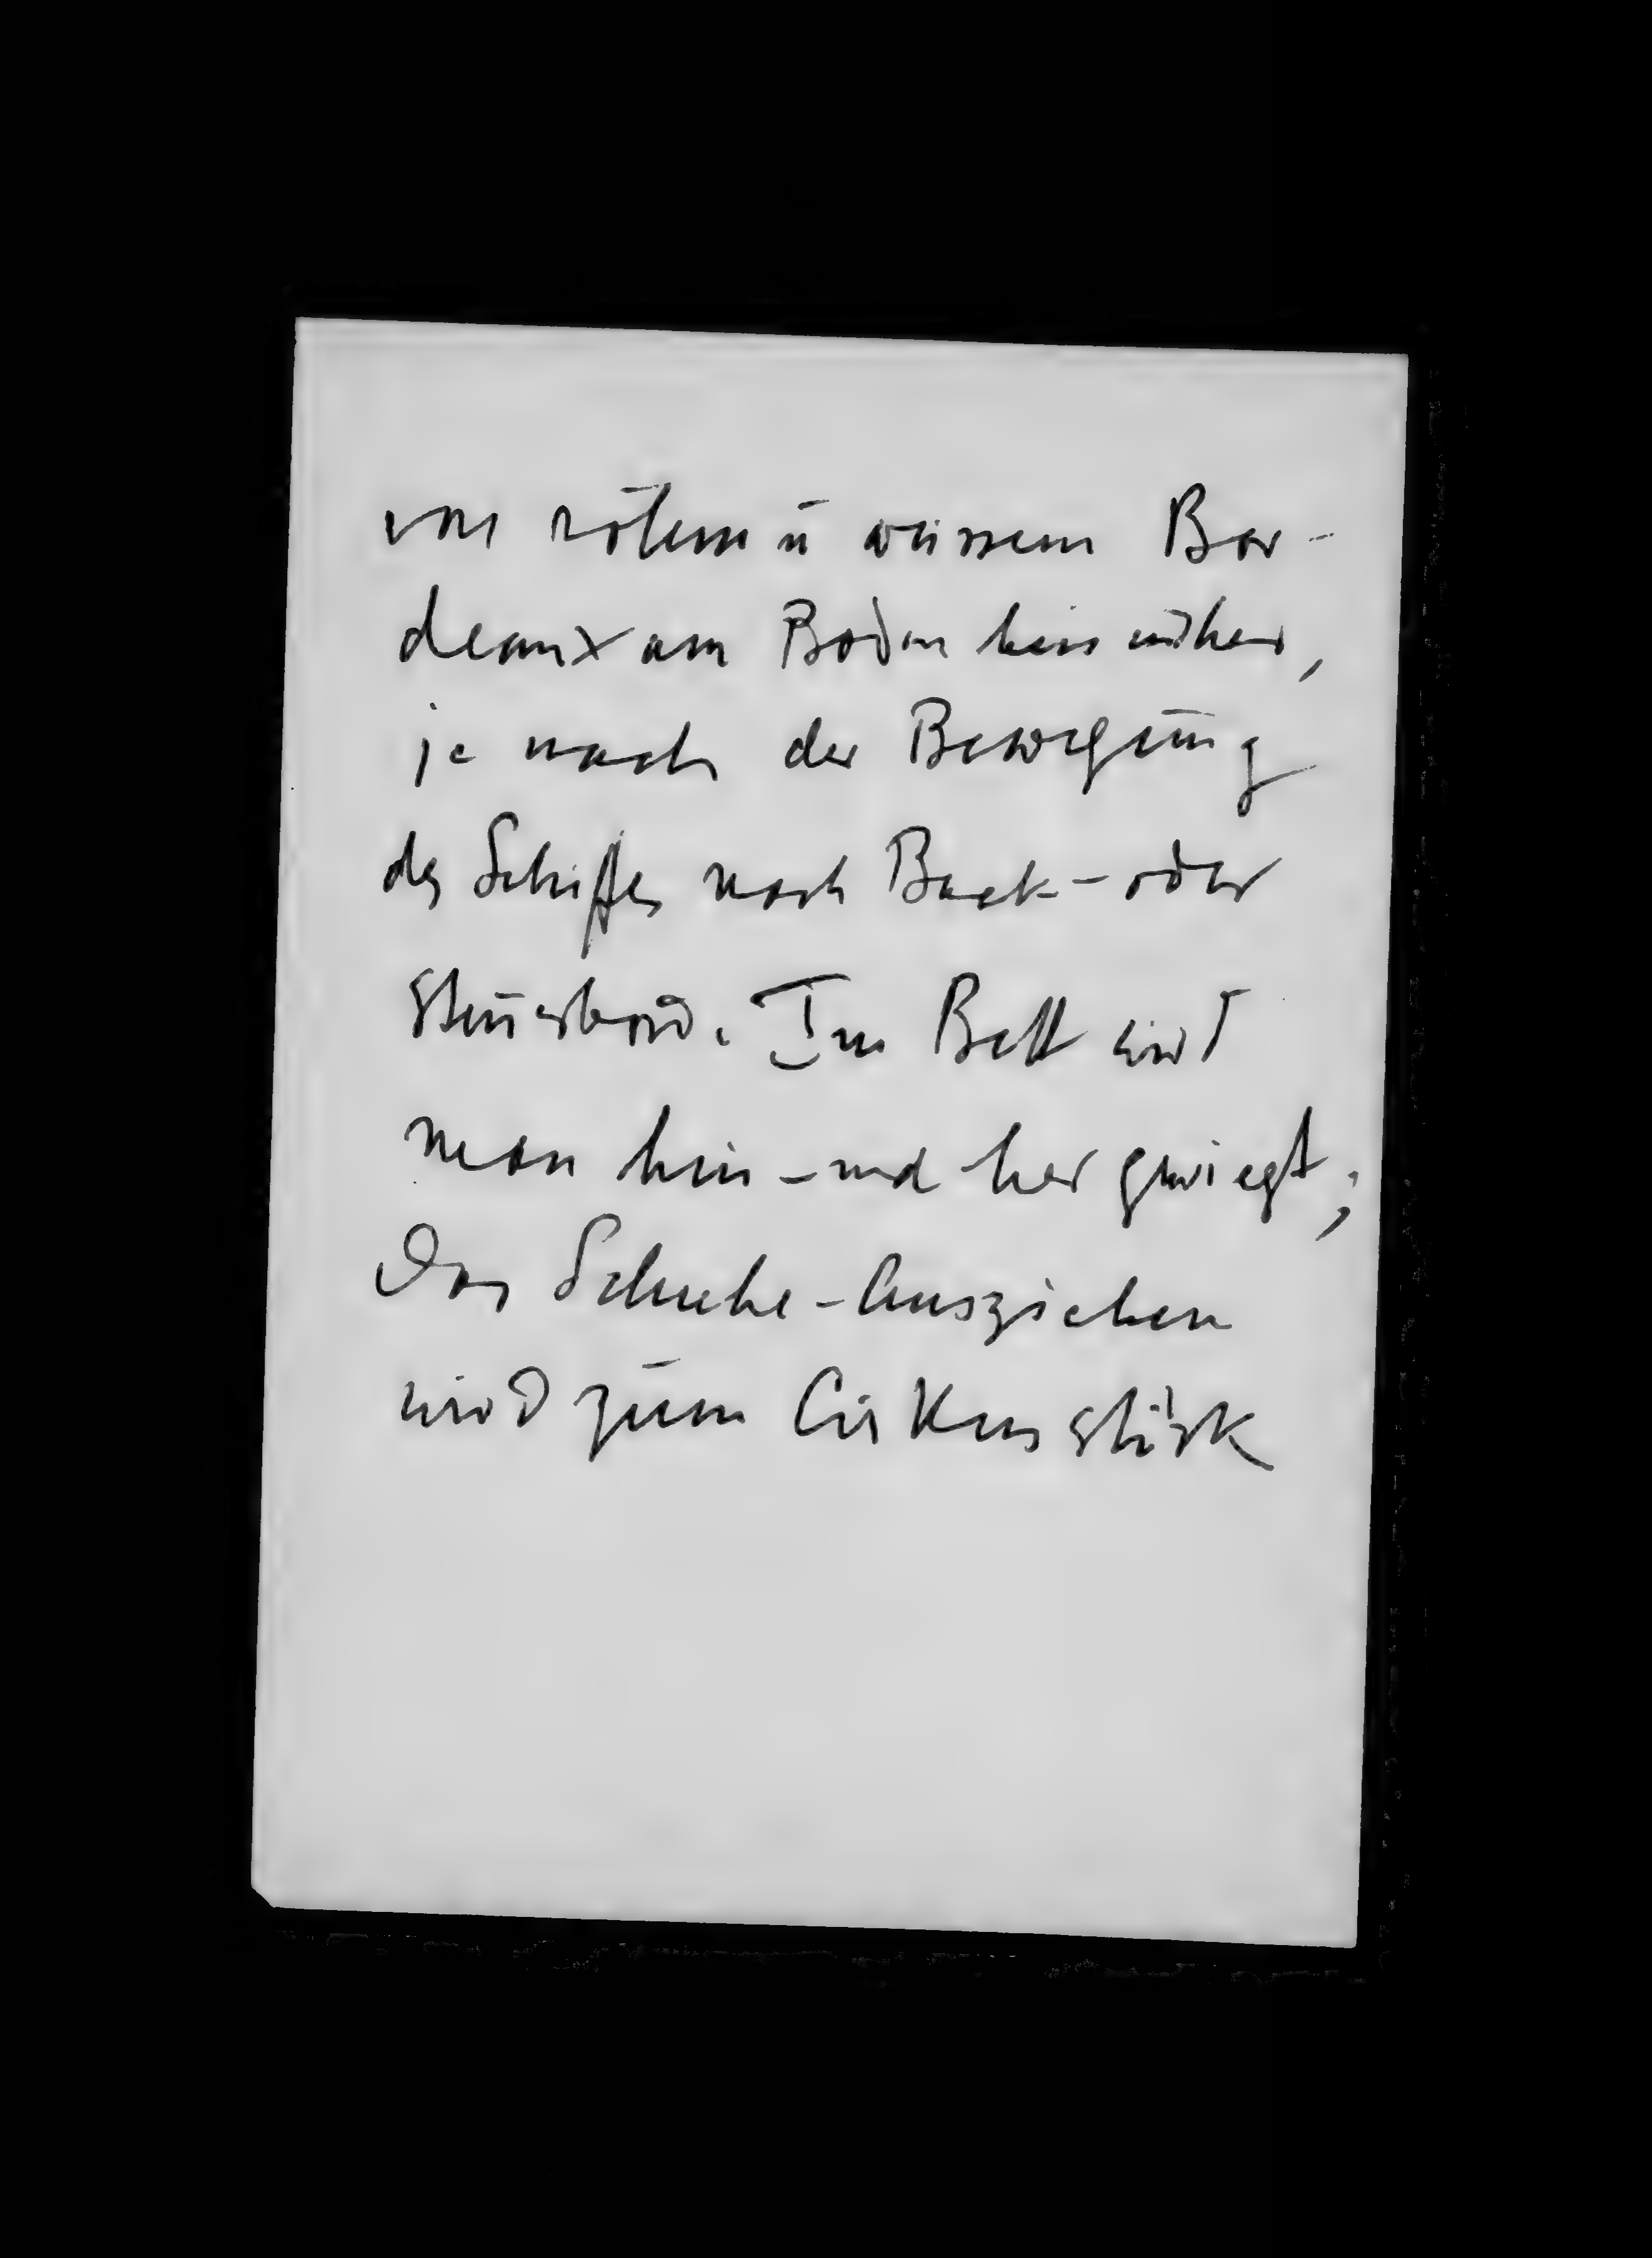 von rotem u weissem Bor-
deaux am Boden hin und her,
je nach der Bewegung
des Schiffes nach Back- oder
Steuerbord. Im Bett wird
man hin- und her gewiegt;
Das Schuhe-Ausziehen
wird zum Cirkusstück